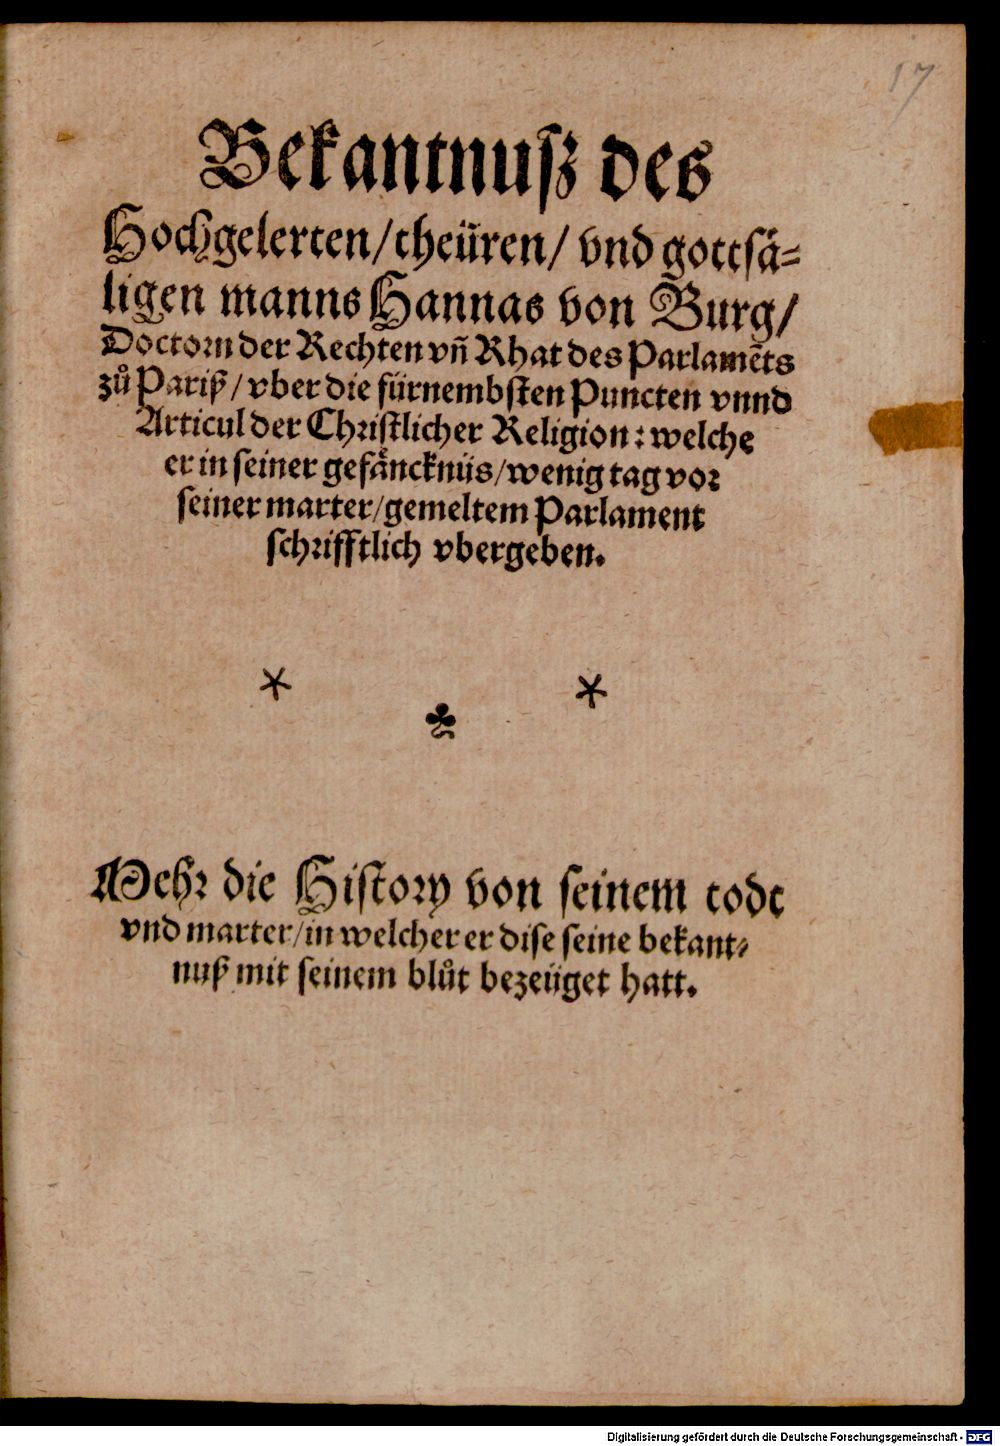 17
Bekantnusz des
Hochgelerten/theüren/ vnd gottsä-
ligen manns Hannas von Burg/
Doctorn der Rechten vñ Rhat des Parlamẽts
zů Pariß/ vber die fürnembsten Puncten vnnd
Articul der Christlicher Religion: welche
er in seiner gefäncknüs/wenig tag vor
seiner marter/gemeltem Parlament
schrifftlich vbergeben.
Mehr die History von seinem todt
vnd marter/in welcher er dise seine bekant-
nuß mit seinem blůt bezeüget hatt.
Digitalisierung gefördert durch die Deutsche Forschungsgemeinschaft - DFG